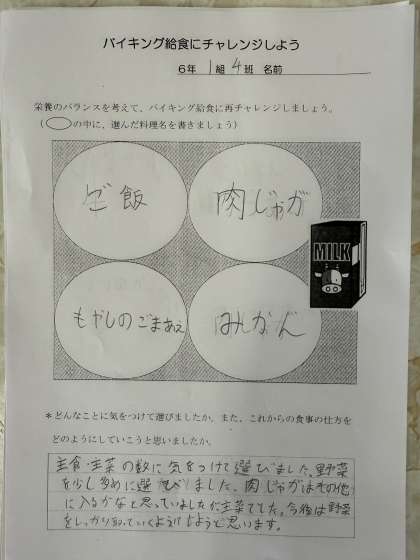 バイキング給食にチャレンジしよう
6年 1組 4班 名前
栄養のバランスを考えて、バイキング給食に再チャレンジしましょう。
（ の中に、選んだ料理名を書きましょう）
ご飯
肉じゃが
MILK
もやしのごまあえ
みかん
＊どんなことに気をつけて選びましたか。また、これからの食事の仕方を
どのようにしていこうと思いましたか。
主食・主菜の数に気をつけて選びました。野菜
を少し多めに選びました。肉じゃがはその他
に入るかなと思っていましたが主菜でした。今後は野菜
をしっかり取っていくようにしようと思います。